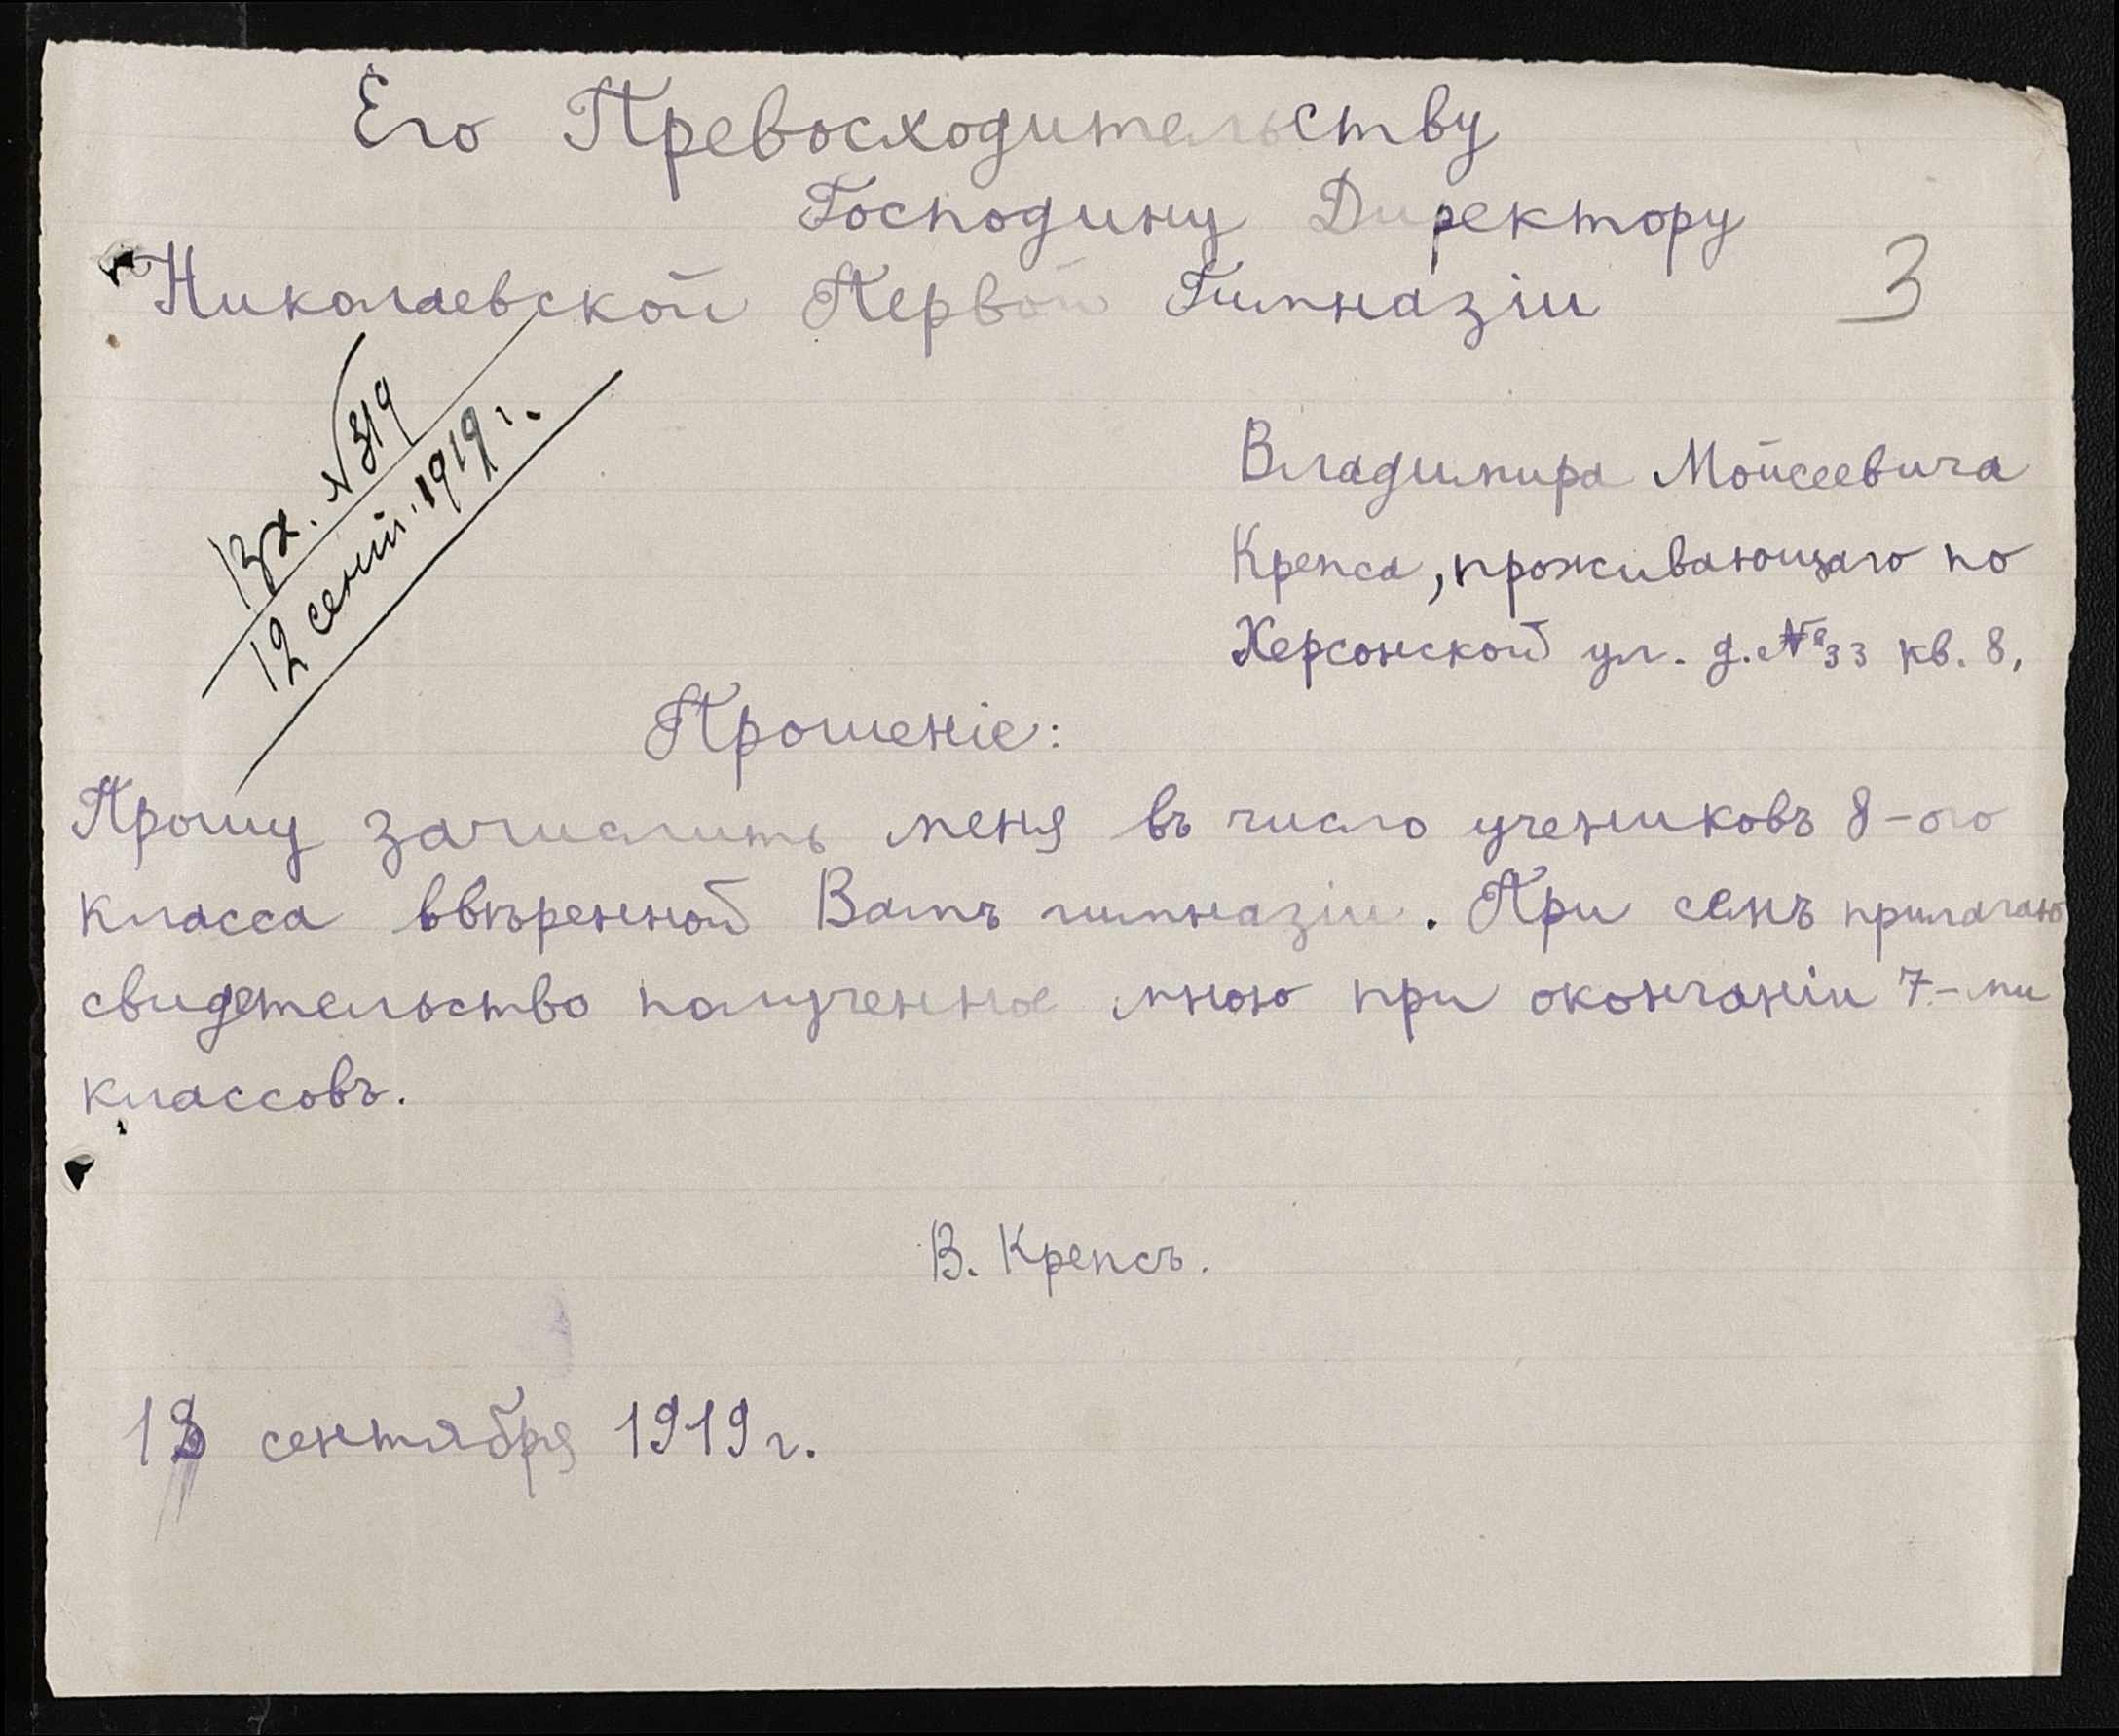 Его Превосходительству
Господину Директору
Николаевской Первой Гимназіи
3
Вх. № 319
12 сент. 1919 г.
Владимира Мойсеевича
Крепса, проживающаго по
Херсонской ул. д. № 33 кв. 8,
Прошеніе:
Прошу зачислить меня въ число учениковъ 8-ого
класса ввѣренной Вамъ гимназіи. При семъ прилагаю
свидетельство полученное мною при окончаніи 7-ми
классовъ.
В. Крепсъ.
сентября 1919 г.